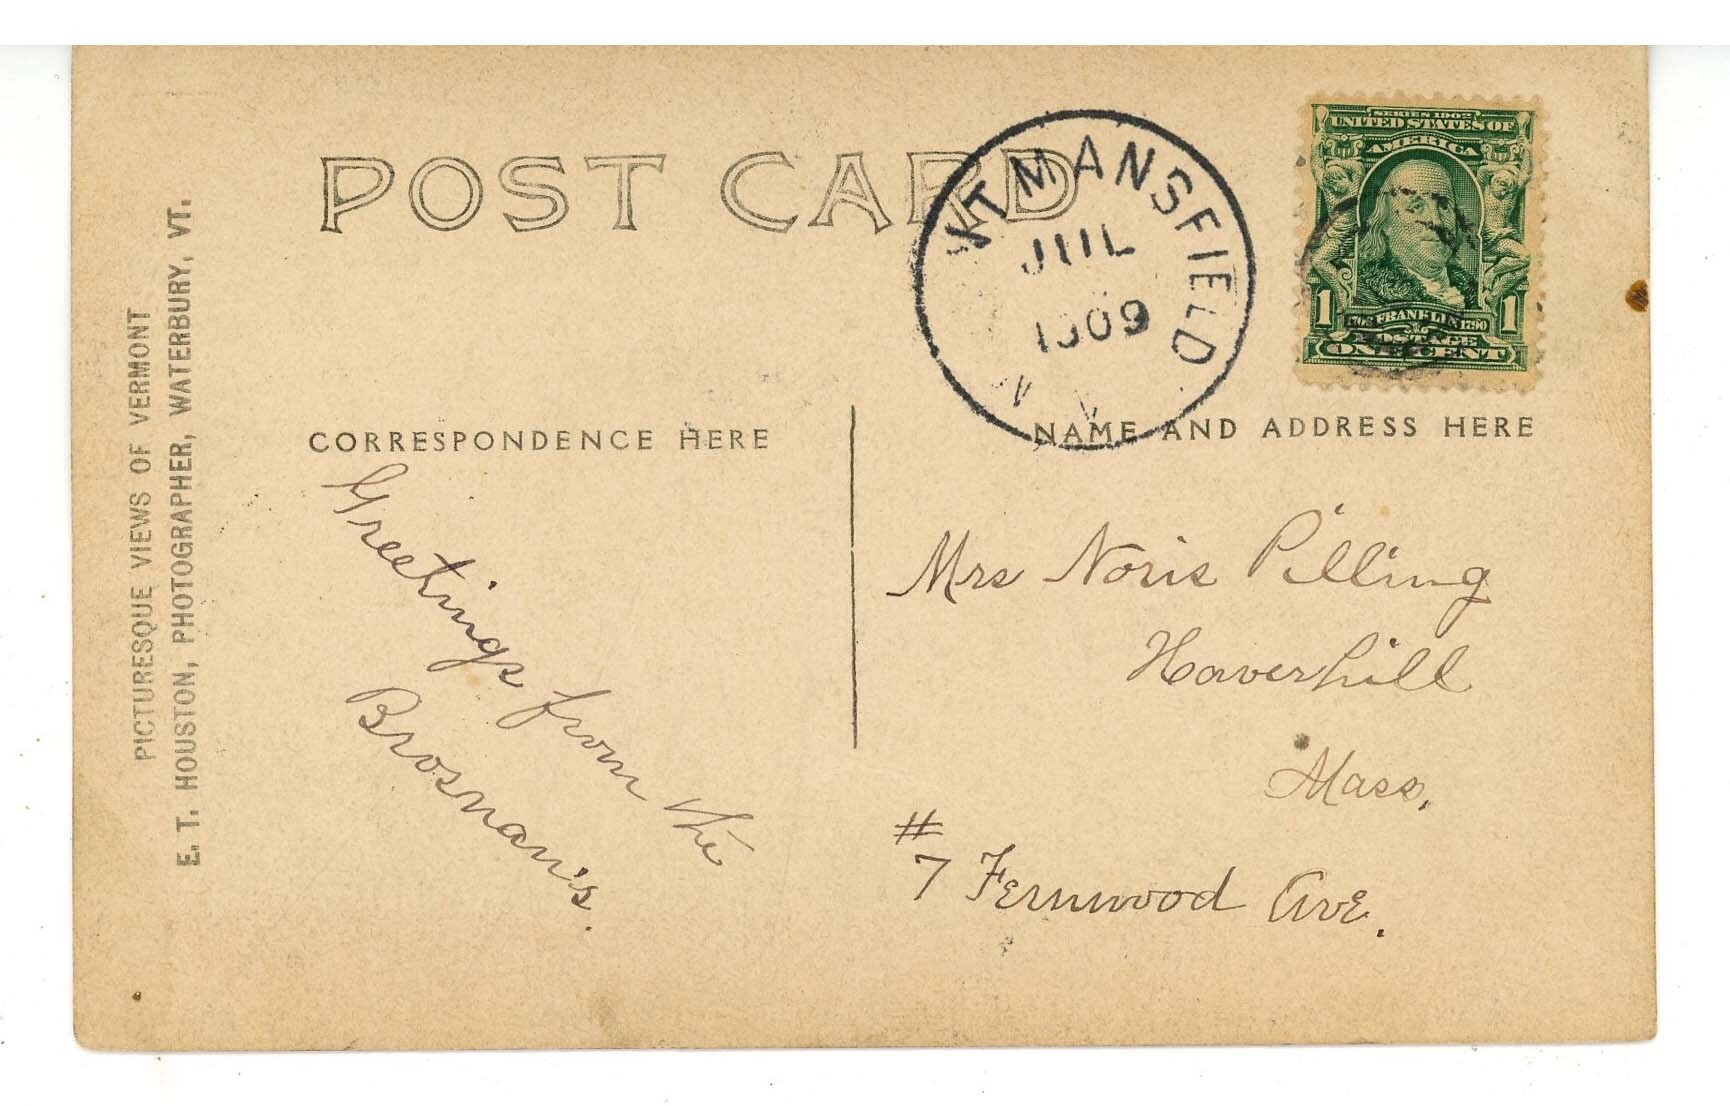 PICTURESQUE VIEWS OF VERMONT
E. T. HOUSTON, PHOTOGRAPHER, WATERBURY, VT.
POST CARD
MT MANSFIELD
JUL
1909
SERIES 1902
UNITED STATES OF
AMERICA
1 1
FRANKLIN 1790
POSTAGE
ONE CENT
CORRESPONDENCE HERE
NAME AND ADDRESS HERE
Greetings from the
Brosnan's.
Mrs Noris Pilling
Haverhill
Mass.
#7 Fernwood Ave.